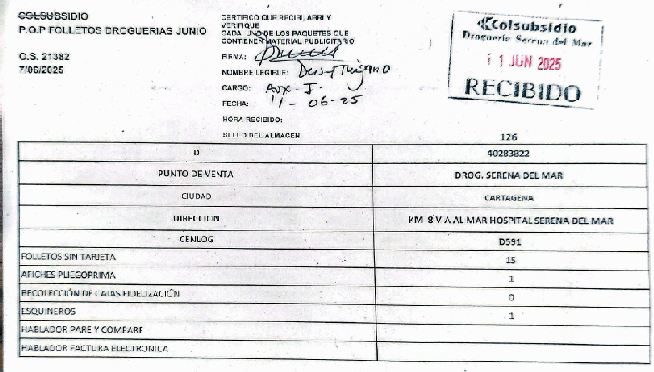 COLSUBSIDIO
P.O.P FOLLETOS DROGUERIAS JUNIO
O.S. 21382
7/06/2025
CERTIFICO QUE RECIBI, ABRI Y
VERIFIQUE
CADA UNO DE LOS PAQUETES QUE
CONTIENEN MATERIAL PUBLICITARIO
FIRMA:
NOMBRE LEGIBLE:
CARGO: Aux - I.
FECHA: 11 - 06-25
HORA RECIBIDO:
SELLO DEL ALMACEN
Colsubsidio
Drogueria Serena del Mar
11 JUN 2025
RECIBIDO
126
ID 40283822
PUNTO DE VENTA DROG. SERENA DEL MAR
CIUDAD CARTAGENA
DIRECCION KM 8 VIA AL MAR HOSPITAL SERENA DEL MAR
CENLOG D591
FOLLETOS SIN TARJETA 15
AFICHES PLIEGOPRIMA 1
RECOLECCIÓN DE CAJAS FIDELIZACIÓN 0
ESQUINEROS 1
HABLADOR PARE Y COMPARE
HABLADOR FACTURA ELECTRONICA